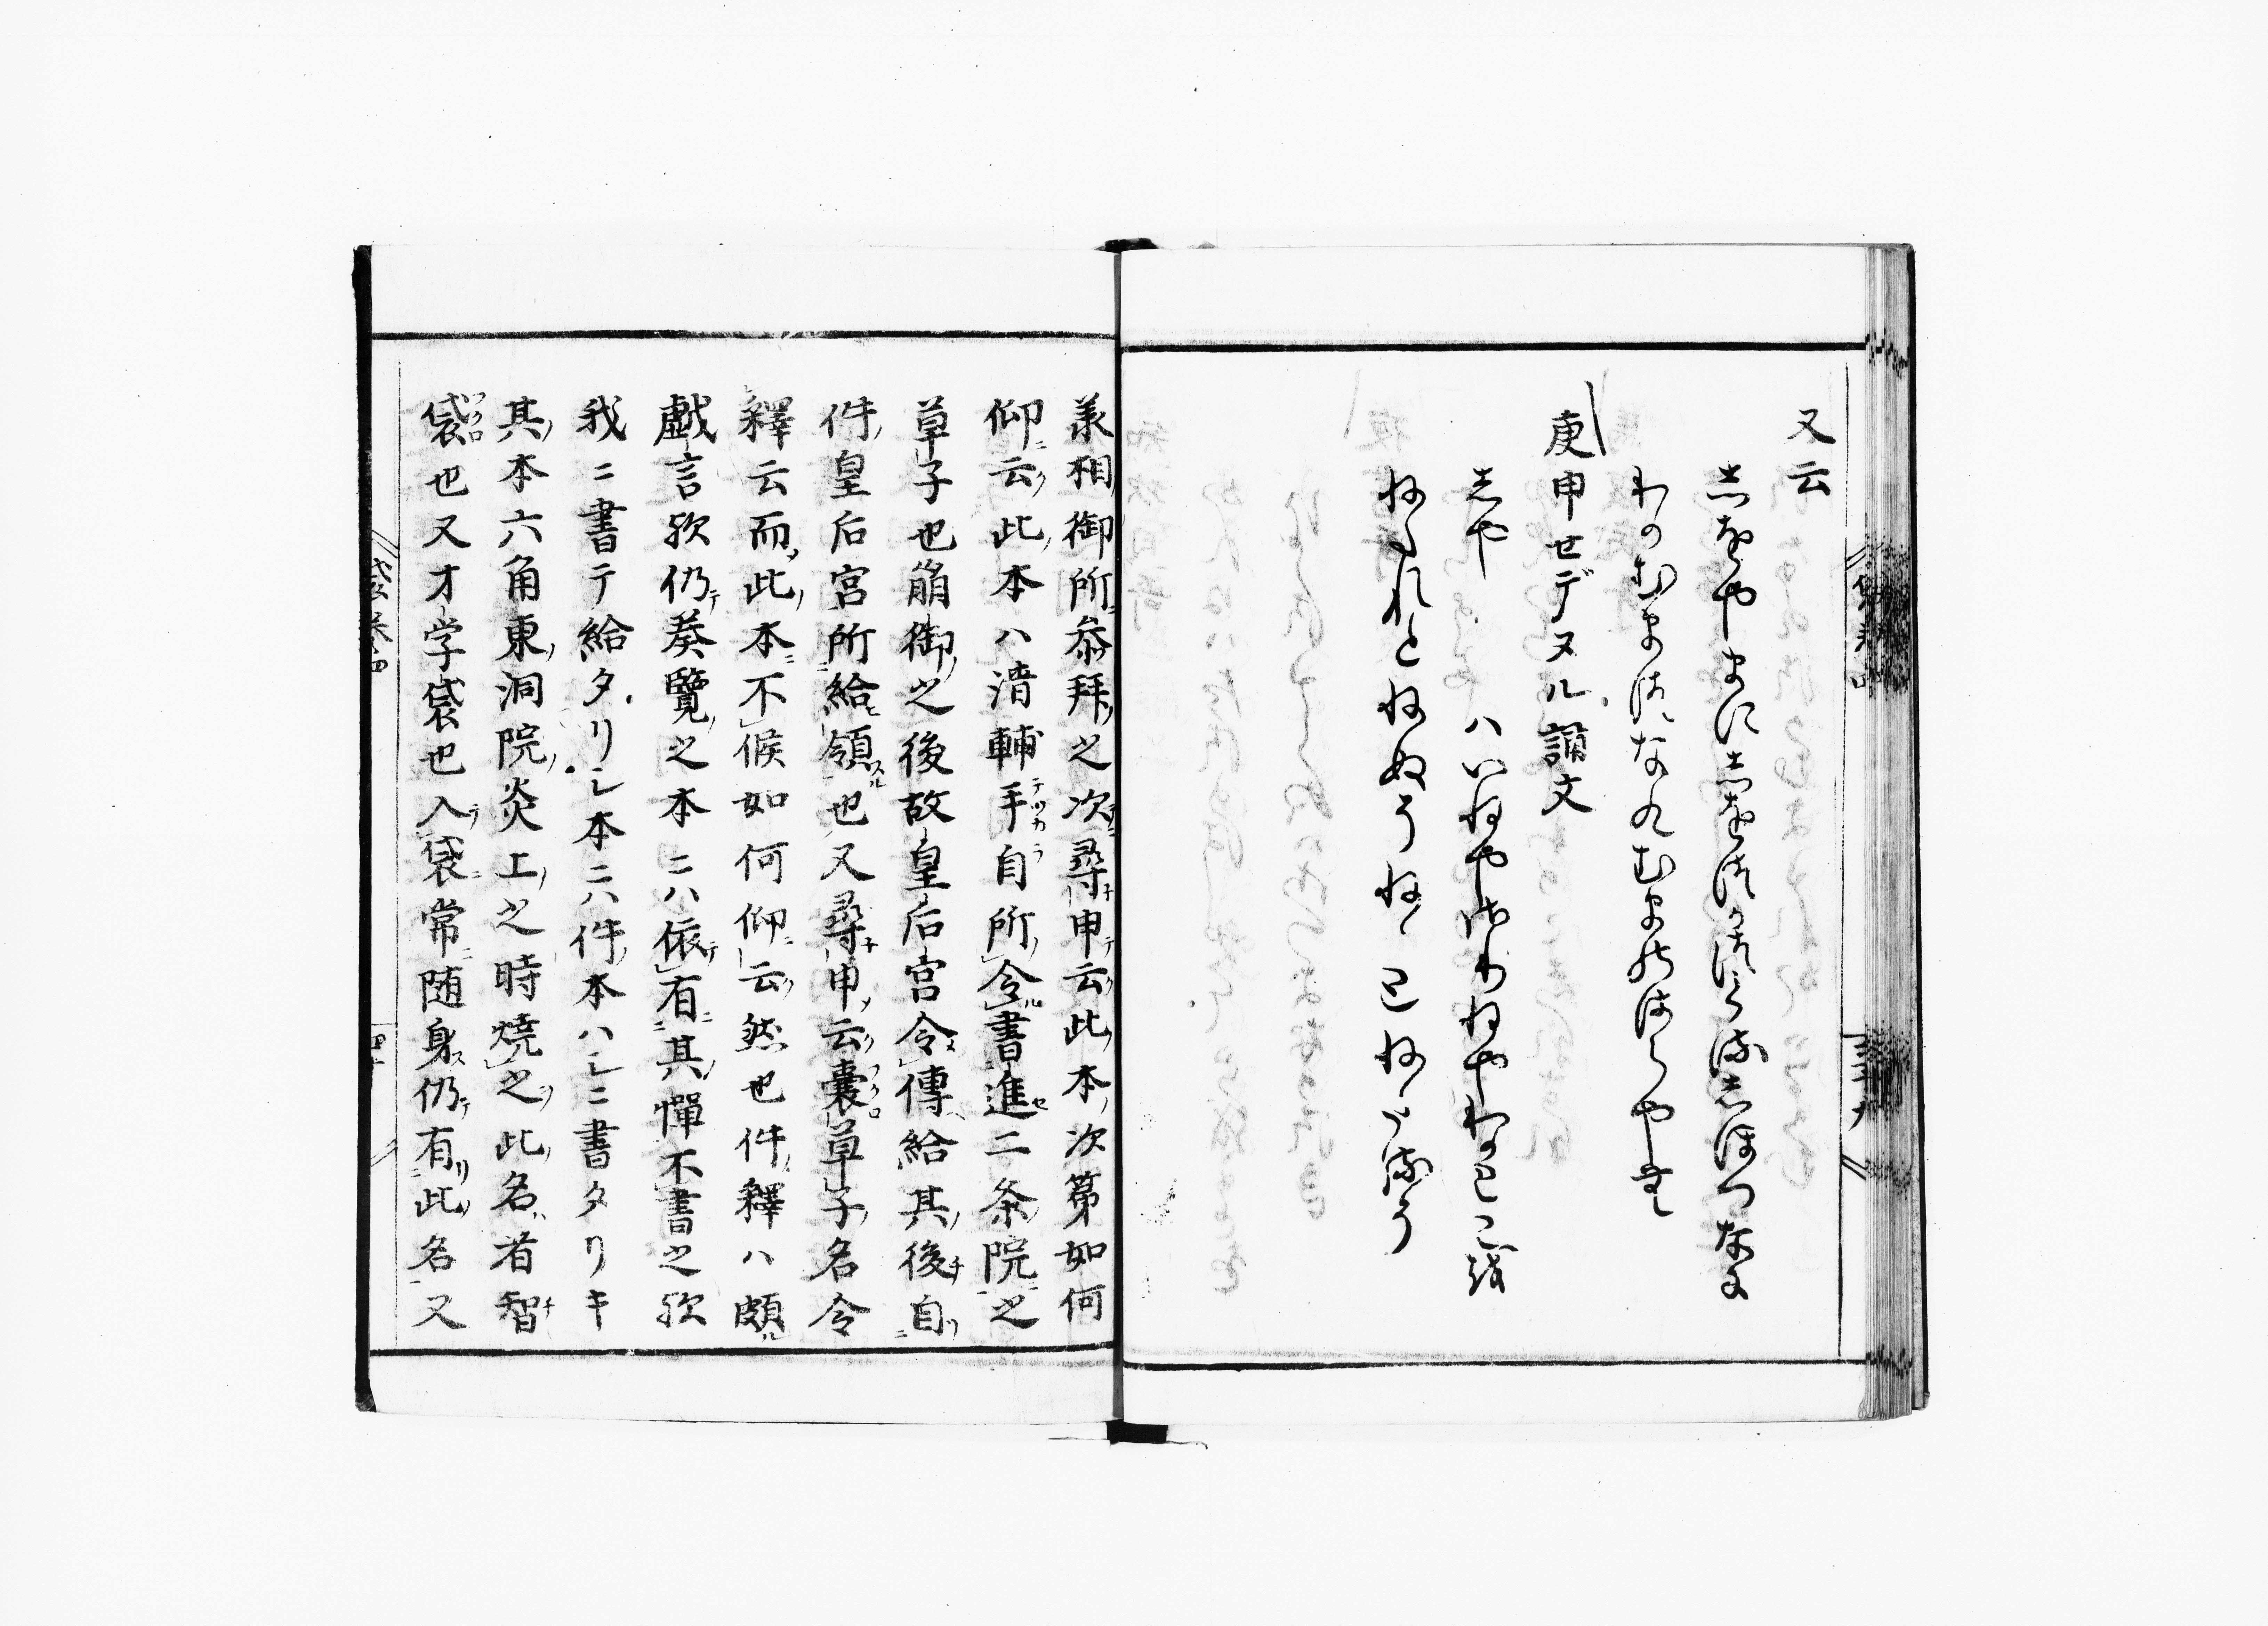 又云
わかむまはなれむまならはや
庚申セデヌル誦文
志や　ハいねやさりねやわかとこを
ねたれとねぬそねゝとねたるそ
相御所参拝之次尋申云此本次第如何
仰云此本ハ清輔手自所令書進二条院之
草子也崩御之後故皇后宮令傳給其後自
件皇后宮所給領也又尋申云嚢草子名令
釋云而此本不候如何仰云然也件釋ハ頗
戯言歟仍奏覽之本ニハ依有其憚不書之歟
我ニ書テ給タリシ本ニハ件本ハシニ書タリキ
其本六角東洞院炎上之時焼之此名者智
袋也又才学袋也入袋常随身仍有此名又